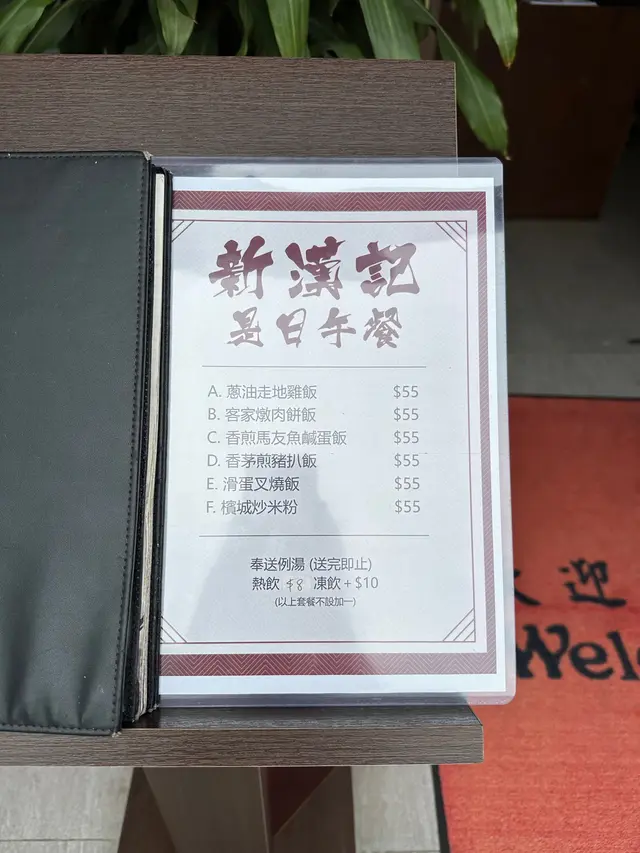 新漢記
是日午餐
A. 蔥油走地雞飯 $55
B. 客家燉肉餅飯 $55
C. 香煎馬友魚鹹蛋飯 $55
D. 香茅煎豬扒飯 $55
E. 滑蛋叉燒飯 $55
F. 檳城炒米粉 $55
奉送例湯 (送完即止)
熱飲 $8 凍飲 + $10
(以上套餐不設加一)
迎
Wel